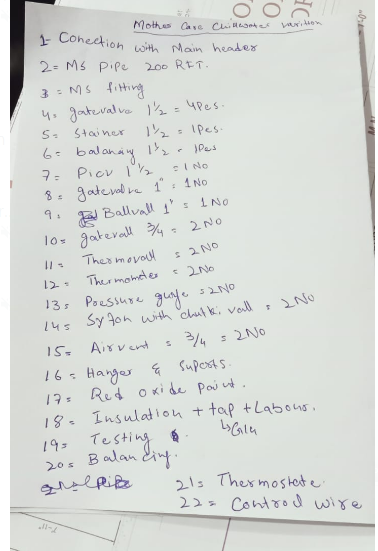 Mother Care Chillwater varition
1- Conection with Main header
2= MS Pipe 200 RFT.
3 = MS fitting
4= gatevalve 1½ = 4Pcs.
5= Stainer 1½ = 1Pcs.
6= balancing 1½ = 1Pcs
7= Picv 1½ = 1 No
8= gatevalve 1" = 1 No
9= Ballvall 1" = 1 No
10= gatevall 3/4 = 2 No
11= Thermovall = 2 No
12= Thermometer = 2 No
13= Pressure guge = 2 No
14= Syfon with vall = 2 No
15= Airvent = 3/4 = 2 No
16= Hanger & Suports.
17= Red Oxide Paint.
18= Insulation + tap + Labour.
19= Testing
20= Balancing.
21= Thermostate
22= Control wire